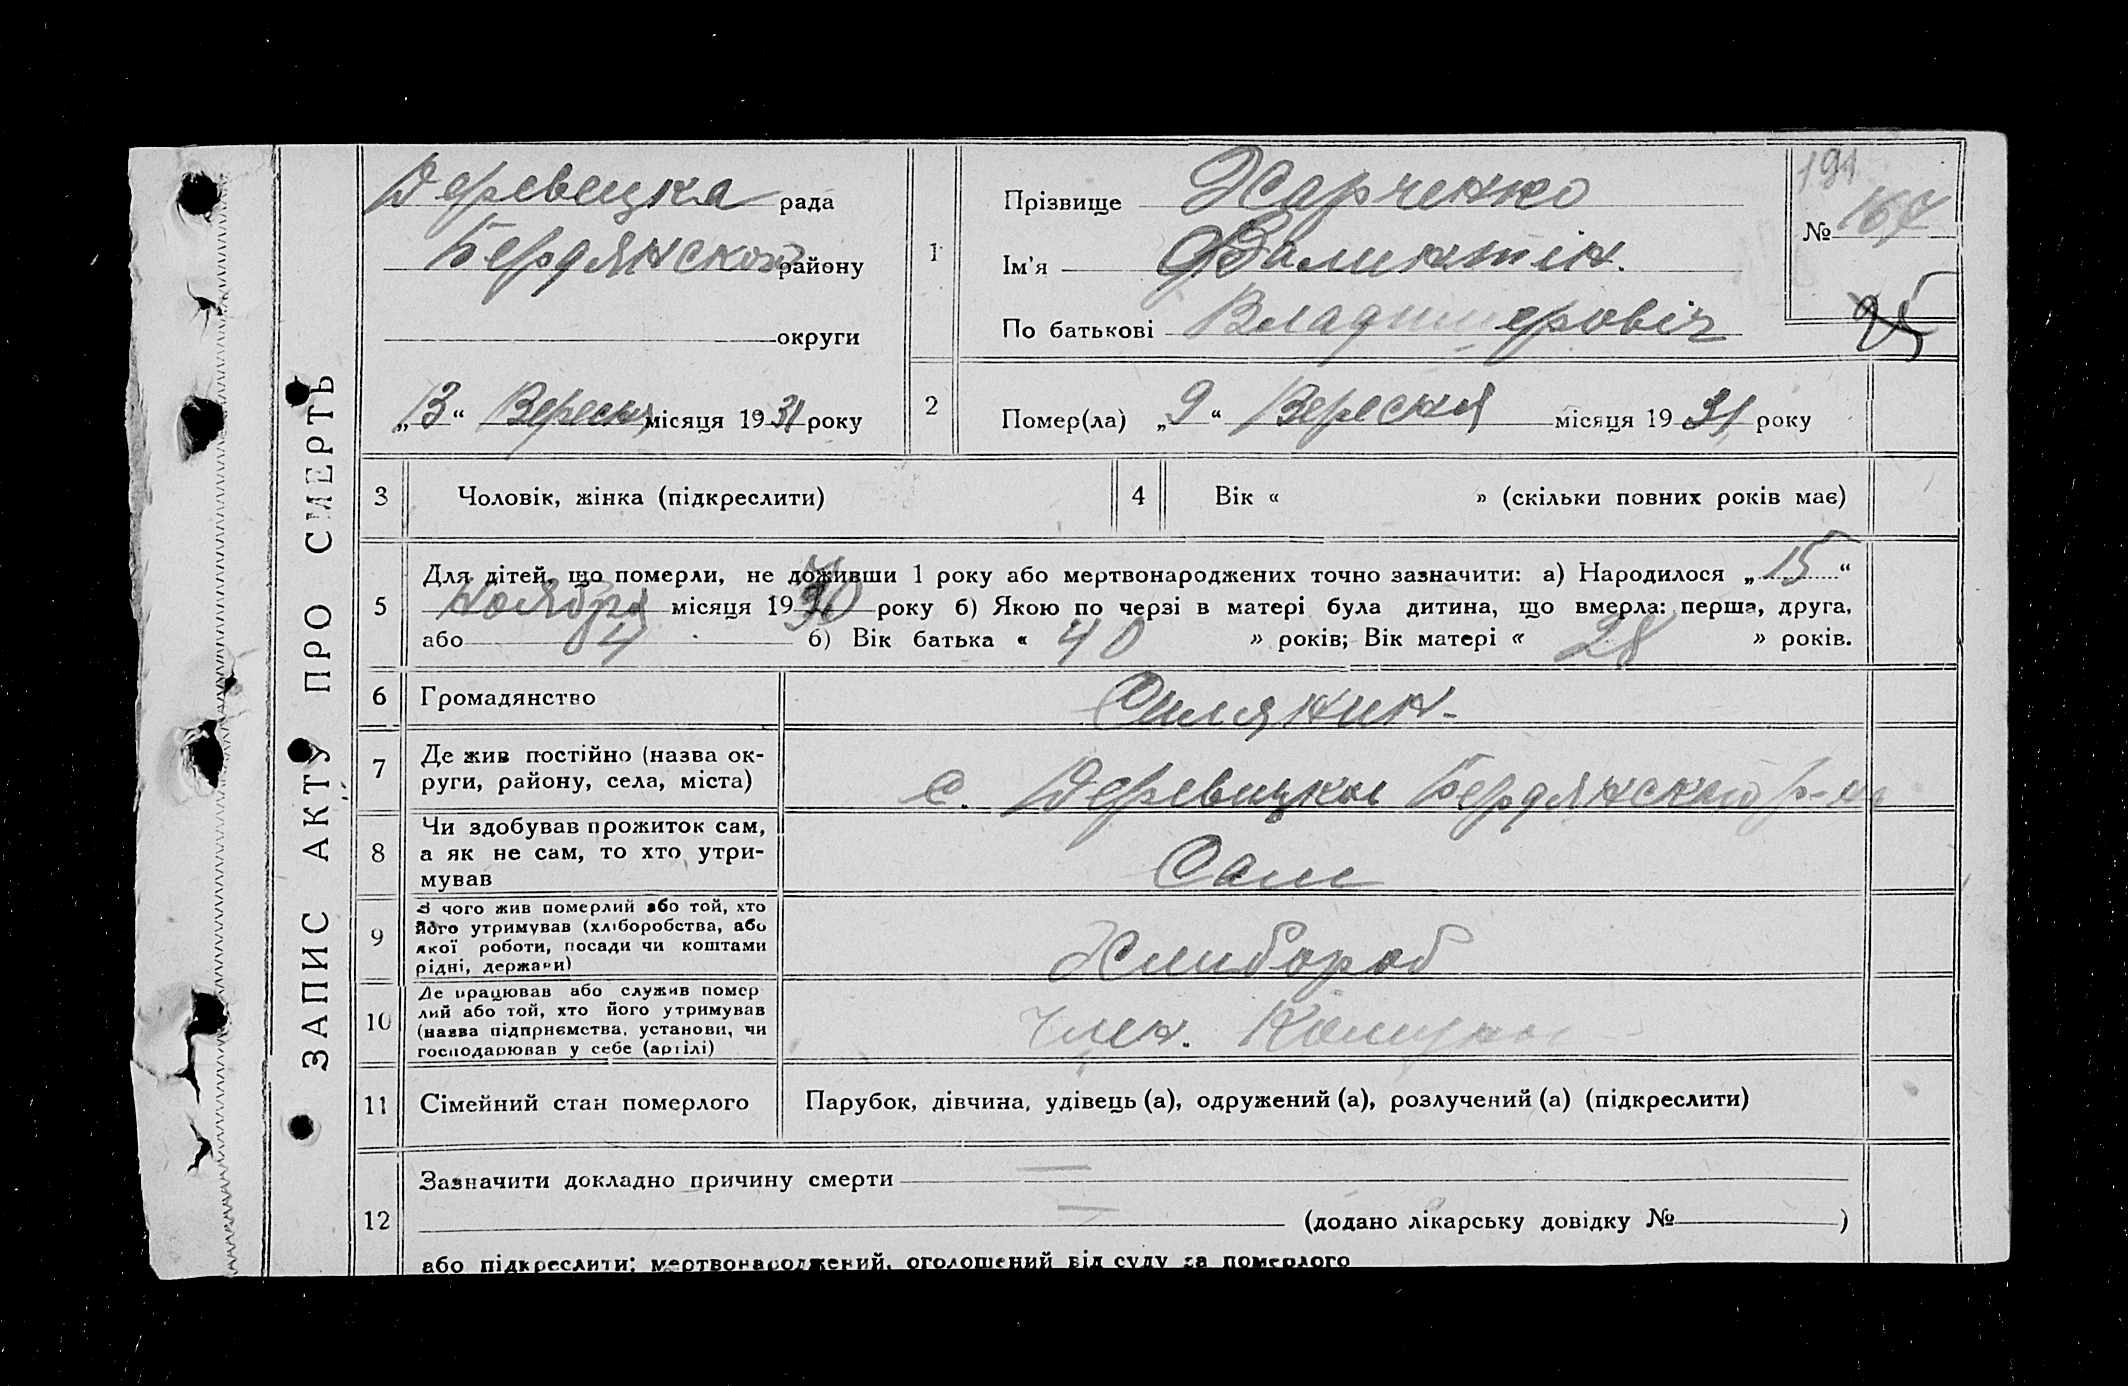 ЗАПИС АКТУ ПРО СМЕРТЬ
Деревецка рада
Бердянского району
округи
„13“ Вересня місяця 1931 року
1
Прізвище Харченко
Ім'я Валинтін.
По батькові Владимеровіч
191
№ 167
95
2
Помер(ла) „9“ Вересня місяця 1931 року
3 Чоловік, жінка (підкреслити)
4 Вік « » (скільки повних років має)
5
Для дітей, що померли, не доживши 1 року або мертвонароджених точно зазначити: а) Народилося „15“
Ноября місяця 1930 року б) Якою по черзі в матері була дитина, що вмерла: перша, друга,
або 4 б) Вік батька « 40 » років; Вік матері « 28 » років.
6 Громадянство Силянин.
7 Де жив постійно (назва ок-
руги, району, села, міста)
с. Деревицка Бердянского р-на
8 Чи здобував прожиток сам,
а як не сам, то хто утри-
мував
Сам
9 З чого жив померлий або той, хто
його утримував (хліборобства, або
якої роботи, посади чи коштами
рідні, держави)
Хлибороб
10 Де працював або служив помер
лий або той, хто його утримував
(назва підприємства, установи, чи
господарював у себе (артілі)
Член. Комуни
11 Сімейний стан померлого Парубок, дівчина, удівець (а), одружений (а), розлучений (а) (підкреслити)
12
Зазначити докладно причину смерти —
— (додано лікарську довідку № )
або підкреслити: мертвонароджений, оголошений від суду за померлого